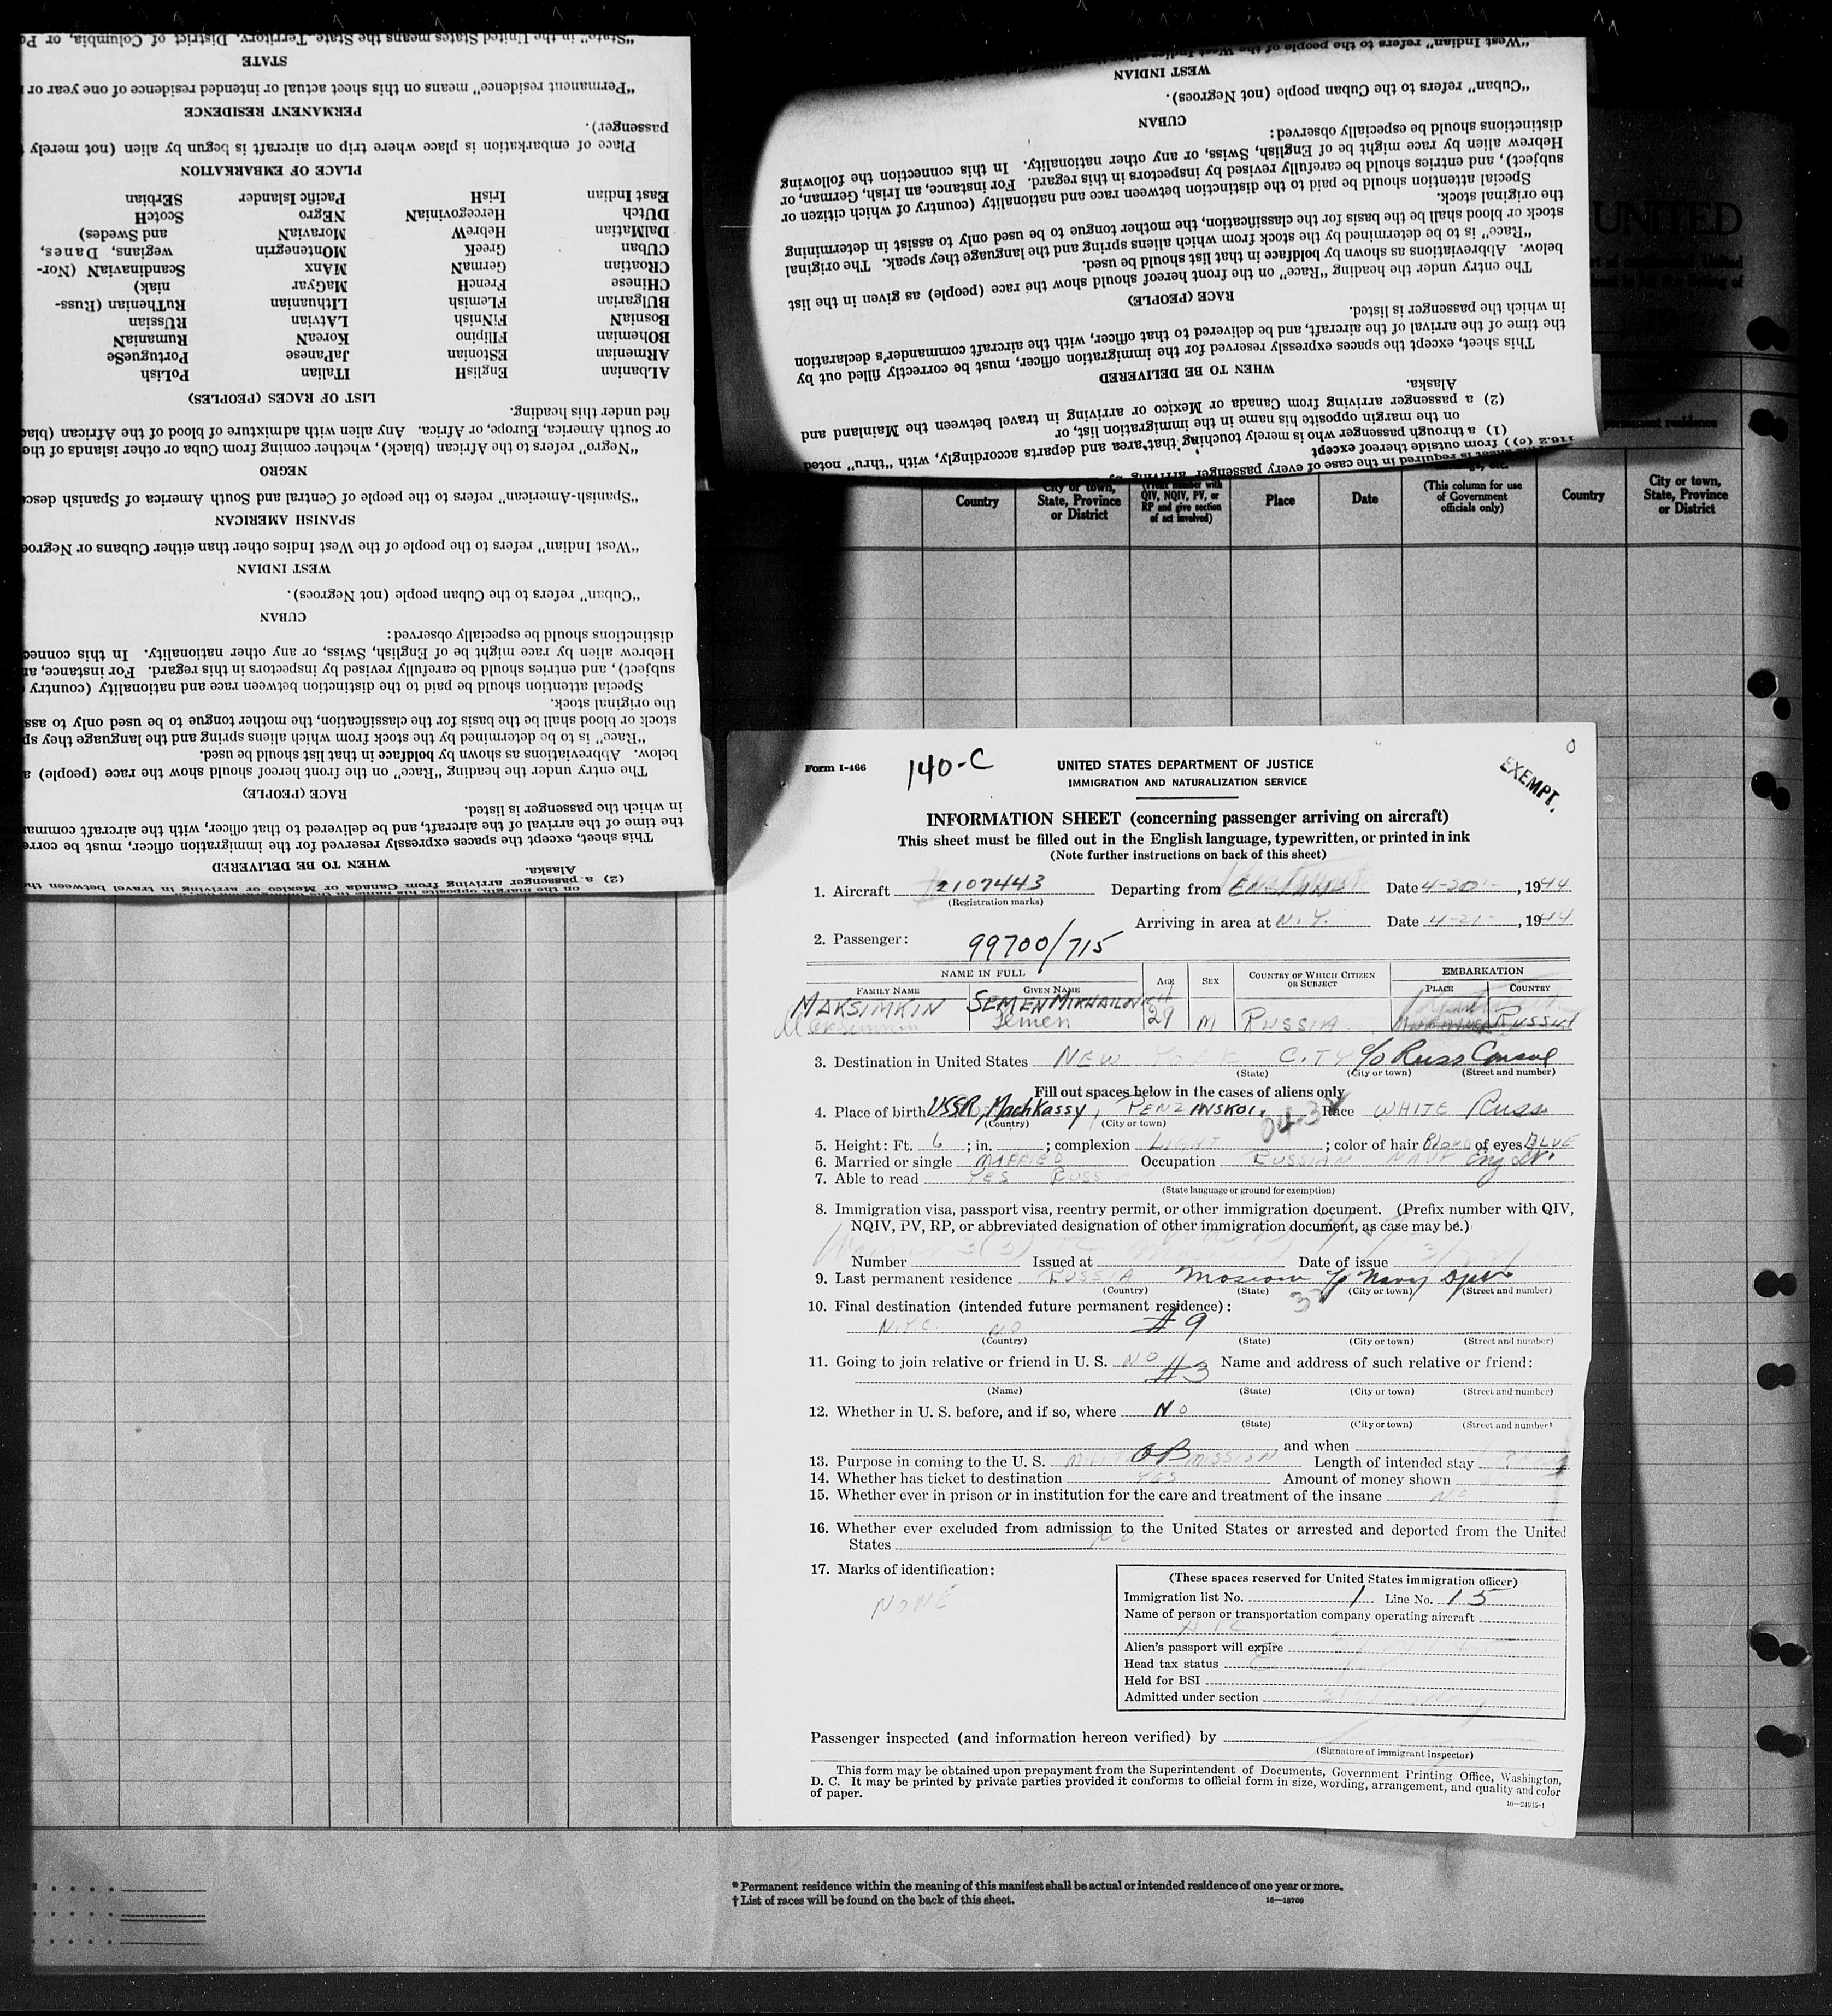 "State" in the United States means the State, Territory, District of Columbia, or
STATE
"Permanent residence" means on this sheet actual or intended residence of one year or
PERMANENT RESIDENCE
passenger).
Place of embarkation is place where trip on aircraft is begun by alien (not merely
PLACE OF EMBARKATION
East Indian IrisH Pacific Islander SErbian
DUtch HercegoviniaN NEgro ScotcH
DalMatian HebreW MoraviaN and Swedes)
CUban GreeK MOntenegrin wegians, Danes,
CRoatian GermaN MAnx ScandinaviaN (Nor-
CHinese FrencH MaGyar niak)
BUlgarian FLemish LIthuanian RuThenian (Russ-
BosniaN FiNnish LAtvian RUssian
BOhemian FIlipino KoreaN RumaniaN
ARmenian EStonian JaPanese PortugueSe
ALbanian EnglisH ITalian PoLish
LIST OF RACES (PEOPLES)
fied under this heading.
or South America, Europe, or Africa. Any alien with admixture of blood of the African
"Negro" refers to the African (black), whether coming from Cuba or other islands of the
NEGRO
"Spanish-American" refers to the people of Central and South America of Spanish
SPANISH AMERICAN
"West Indian" refers to the people of the West Indies other than either Cubans or
WEST INDIAN
"Cuban" refers to the Cuban people (not Negroes).
CUBAN
distinctions should be especially observed:
Hebrew alien by race might be of English, Swiss, or any other nationality. In this
subject), and entries should be carefully revised by inspectors in this regard. For instance,
Special attention should be paid to the distinction between race and nationality (country
the original stock.
stock or blood shall be the basis for the classification, the mother tongue to be used only to
"Race" is to be determined by the stock from which aliens spring and the language they
below. Abbreviations as shown by boldface in that list should be used.
The entry under the heading "Race" on the front hereof should show the race (people)
RACE (PEOPLE)
in which the passenger is listed.
the time of the arrival of the aircraft, and be delivered to that officer, with the aircraft
This sheet, except the spaces expressly reserved for the immigration officer, must be
WHEN TO BE DELIVERED
Alaska.
(2) a passenger arriving from Canada or Mexico or arriving in travel between the
on the margin opposite his name in the immigration list, or
"West Indian" refers to the people of the West
WEST INDIAN
"Cuban" refers to the Cuban people (not Negroes).
CUBAN
distinctions should be especially observed:
Hebrew alien by race might be of English, Swiss, or any other nationality. In this connection the following
subject), and entries should be carefully revised by inspectors in this regard. For instance, an Irish, German, or
Special attention should be paid to the distinction between race and nationality (country of which citizen or
the original stock.
stock or blood shall be the basis for the classification, the mother tongue to be used only to assist in determining
"Race" is to be determined by the stock from which aliens spring and the language they speak. The original
below. Abbreviations as shown by boldface in that list should be used.
The entry under the heading "Race" on the front hereof should show the race (people) as given in the list
RACE (PEOPLE)
in which the passenger is listed.
the time of the arrival of the aircraft, and be delivered to that officer, with the aircraft commander's declaration
This sheet, except the spaces expressly reserved for the immigration officer, must be correctly filled out by
WHEN TO BE DELIVERED
Alaska.
(2) a passenger arriving from Canada or Mexico or arriving in travel between the Mainland and
on the margin opposite his name in the immigration list, or
(1) a through passenger who is merely touching that area and departs accordingly, with "thru" noted
from outside thereof except
is required in the case of every passenger arriving
UNITED
permanent residence
Country
City or town, State, Province or District
QIV, NQIV, PV, or RP and give section of act involved)
Place
Date
(This column for use of Government officials only)
Country
City or town, State, Province or District
Form I-466
140-C
UNITED STATES DEPARTMENT OF JUSTICE
IMMIGRATION AND NATURALIZATION SERVICE
EXEMPT.
INFORMATION SHEET (concerning passenger arriving on aircraft)
This sheet must be filled out in the English language, typewritten, or printed in ink
(Note further instructions on back of this sheet)
1. Aircraft 2107443 Departing from Date 4-20-, 1944
(Registration marks)
Arriving in area at N.Y. Date 4-21-, 1944
2. Passenger: 99700/715
NAME IN FULL AGE SEX COUNTRY OF WHICH CITIZEN OR SUBJECT EMBARKATION
FAMILY NAME GIVEN NAME PLACE COUNTRY
MAKSIMKIN SEMEN MIKHAILOVICH
Semen 29 M RUSSIA RUSSIA
3. Destination in United States NEW YORK CITY c/o Russ Consul
(State) (City or town) (Street and number)
Fill out spaces below in the cases of aliens only
4. Place of birth USSR, MachKassy, PENZANSKOI. Race WHITE Russ
(Country) (City or town)
5. Height: Ft. 6; in. ; complexion LIGHT; color of hair Blond of eyes BLUE
6. Married or single MARRIED Occupation RUSSIAN NAVY
7. Able to read YES RUSSIAN
(State language or ground for exemption)
8. Immigration visa, passport visa, reentry permit, or other immigration document. (Prefix number with QIV, NQIV, PV, RP, or abbreviated designation of other immigration document, as case may be.)
Number Issued at Date of issue
9. Last permanent residence RUSSIA Moscow c/o Navy Dept
(Country) (State) (City or town) (Street and number)
10. Final destination (intended future permanent residence):
N.Y.C. NO #9
(Country) (State) (City or town) (Street and number)
11. Going to join relative or friend in U. S. NO #3 Name and address of such relative or friend:
(Name) (State) (City or town) (Street and number)
12. Whether in U. S. before, and if so, where No
(State) (City or town) (Street and number)
and when
13. Purpose in coming to the U. S. OB MISSION Length of intended stay
14. Whether has ticket to destination YES Amount of money shown
15. Whether ever in prison or in institution for the care and treatment of the insane NO
16. Whether ever excluded from admission to the United States or arrested and deported from the United
States NO
17. Marks of identification:
NONE
(These spaces reserved for United States immigration officer)
Immigration list No. 1 Line No. 15
Name of person or transportation company operating aircraft
ATC
Alien's passport will expire
Head tax status
Held for BSI
Admitted under section
Passenger inspected (and information hereon verified) by
(Signature of immigrant inspector)
This form may be obtained upon prepayment from the Superintendent of Documents, Government Printing Office, Washington,
D. C. It may be printed by private parties provided it conforms to official form in size, wording, arrangement, and quality and color
of paper.
16—24915-1
* Permanent residence within the meaning of this manifest shall be actual or intended residence of one year or more.
† List of races will be found on the back of this sheet.
16—18709